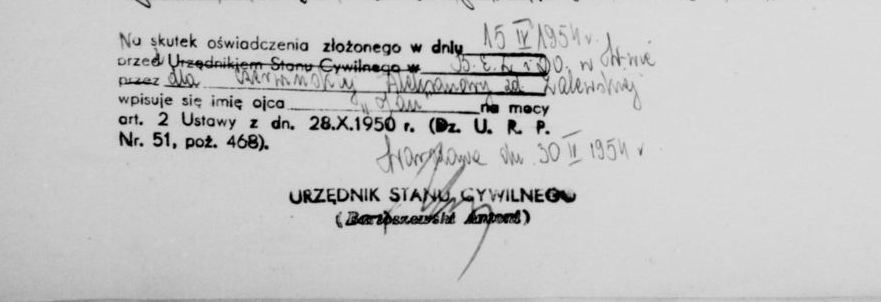 Na skutek oświadczenia złożonego w dniu 15 IV 1954 r.
przed Urzędnikiem Stanu Cywilnego w
przez dla Czerwińskiej Aleksandry zd Zalewskiej
wpisuje się imię ojca „Jan" na mocy
art. 2 Ustawy z dn. 28.X.1950 r. (Dz. U. R. P.
Nr. 51, poz. 468).
Warszawa dn. 30 IV 1954 r
URZĘDNIK STANU CYWILNEGO
(Bartoszewski Antoni)